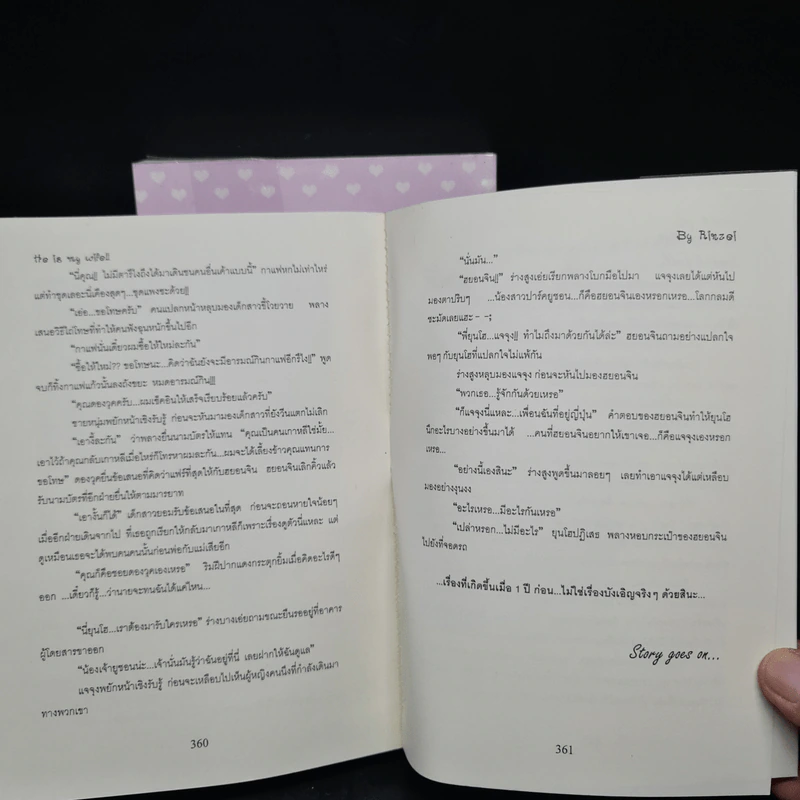 He is my wife!!
“นี่คุณ!! ไม่มีตารึไงถึงได้มาเดินชนคนอื่นเค้าแบบนี้” กาแฟหกไม่เท่าไหร่
แต่ทำชุดเลอะะนี่เคืองสุดๆ...ชุดแพงซะด้วย!!
“เอ่อ...ขอโทษครับ” คนแปลกหน้าหลุบมองเด็กสาวขี้โวยวาย พลาง
เสนอวิธีไถ่โทษที่ทำให้คนฟังฉุนหนักขึ้นไปอีก
“กาแฟนั่นเดี๋ยวผมซื้อให้ใหม่ละกัน”
“ซื้อให้ใหม่?? ขอโทษนะ...คิดว่าฉันยังจะมีอารมณ์กินกาแฟอีกรึไง!!” พูด
จบก็ทิ้งกาแฟแก้วนั้นลงถังขยะ หมดอารมณ์กิน!!!
“คุณดองวุคครับ...ผมเช็คอินให้เสร็จเรียบร้อยแล้วครับ”
ชายหนุ่มพยักหน้าเชิงรับรู้ ก่อนจะหันมามองเด็กสาวที่ยังวีนแตกไม่เลิก
“เอางี้ละกัน” ว่าพลางยื่นนามบัตรให้แทน “คุณเป็นคนเกาหลีใช่มั้ย...
เอาไว้ถ้าคุณกลับเกาหลีเมื่อไหร่ก็โทรหาผมละกัน...ผมจะได้เลี้ยงข้าวคุณแทนการ
ขอโทษ” ดองวุคยื่นข้อเสนอที่คิดว่าแฟร์ที่สุดให้กับฮยอนจิน ฮยอนจินเลิกคิ้วแล้ว
รับนามบัตรที่อีกฝ่ายยื่นให้ตามมารยาท
“เอางั้นก็ได้” เด็กสาวยอมรับข้อเสนอในที่สุด ก่อนจะถอนหายใจน้อยๆ
เมื่ออีกฝ่ายเดินจากไป ที่เธอถูกเรียกให้กลับมาเกาหลีก็เพราะเรื่องดูตัวนี่แหละ แต่
ดูเหมือนเธอจะได้พบคนคนนั้นก่อนพ่อกับแม่เสียอีก
“คุณก็คือชอยดองวุคเองเหรอ” ริมฝีปากแดงกระตุกยิ้มเมื่อคิดอะไรดีๆ
ออก ...เดี๋ยวก็รู้...ว่านายจะทนฉันได้แค่ไหน...
“นี่ยุนโฮ...เราต้องมารับใครเหรอ” ร่างบางเอ่ยถามขณะยืนรออยู่ที่อาคาร
ผู้โดยสารขาออก
“น้องเจ้ายูชอนน่ะ...เจ้านั่นมันรู้ว่าฉันอยู่ที่นี่ เลยฝากให้ฉันดูแล”
แจจุงพยักหน้าเชิงรับรู้ ก่อนจะเหลือบไปเห็นผู้หญิงคนนึงที่กำลังเดินมา
ทางพวกเขา
360
By Rinzel
“นั่นมัน...”
“ฮยอนจิน!!” ร่างสูงเอ่ยเรียกพลางโบกมือไปมา แจจุงเลยได้แต่หันไป
มองตาปริบๆ ...น้องสาวปาร์คยูชอน...ก็คือฮยอนจินเองหรอกเหรอ...โลกกลมดี
ชะมัดเลยแฮะ - -;
“พี่ยุนโฮ...แจจุง!! ทำไมถึงมาด้วยกันได้ล่ะ” ฮยอนจินถามอย่างแปลกใจ
พอๆ กับยุนโฮที่แปลกใจไม่แพ้กัน
ร่างสูงหลุบมองแจจุง ก่อนจะหันไปมองฮยอนจิน
“พวกเธอ...รู้จักกันด้วยเหรอ”
“ก็แจจุงนี่แหละ...เพื่อนฉันที่อยู่ญี่ปุ่น” คำตอบของฮยอนจินทำให้ยุนโฮ
นึกอะไรบางอย่างขึ้นมาได้ ...คนที่ฮยอนจินอยากให้เขาเจอ...ก็คือแจจุงเองหรอก
เหรอ...
“อย่างนี้เองสินะ” ร่างสูงพูดขึ้นมาลอยๆ เลยทำเอาแจจุงได้แต่เหลือบ
มองอย่างงุนงง
“อะไรเหรอ...มีอะไรกันเหรอ”
“เปล่าหรอก...ไม่มีอะไร” ยุนโฮปฏิเสธ พลางหอบกระเป๋าของฮยอนจิน
ไปยังที่จอดรถ
...เรื่องที่เกิดขึ้นเมื่อ 1 ปี ก่อน...ไม่ใช่เรื่องบังเอิญจริงๆ ด้วยสินะ...
Story goes on...
361